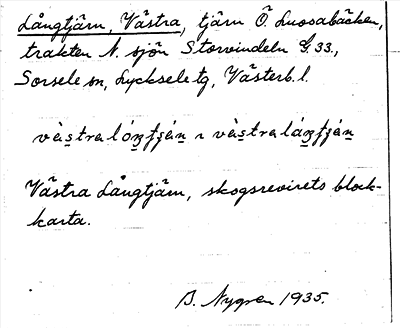 Långtjärn, Västra, tjärn Ö. Luosabäcken,
trakten N. sjön Storvindeln G 33.,
Sorsele sn, Lycksele tg, Västerb. l.
vàs̱tralóŋtjä́ṉ ~ vàs̱tralá́ŋtjä́ṉ
Västra Långtjärn, skogsrevirets block-
karta.
B. Nygren 1935.